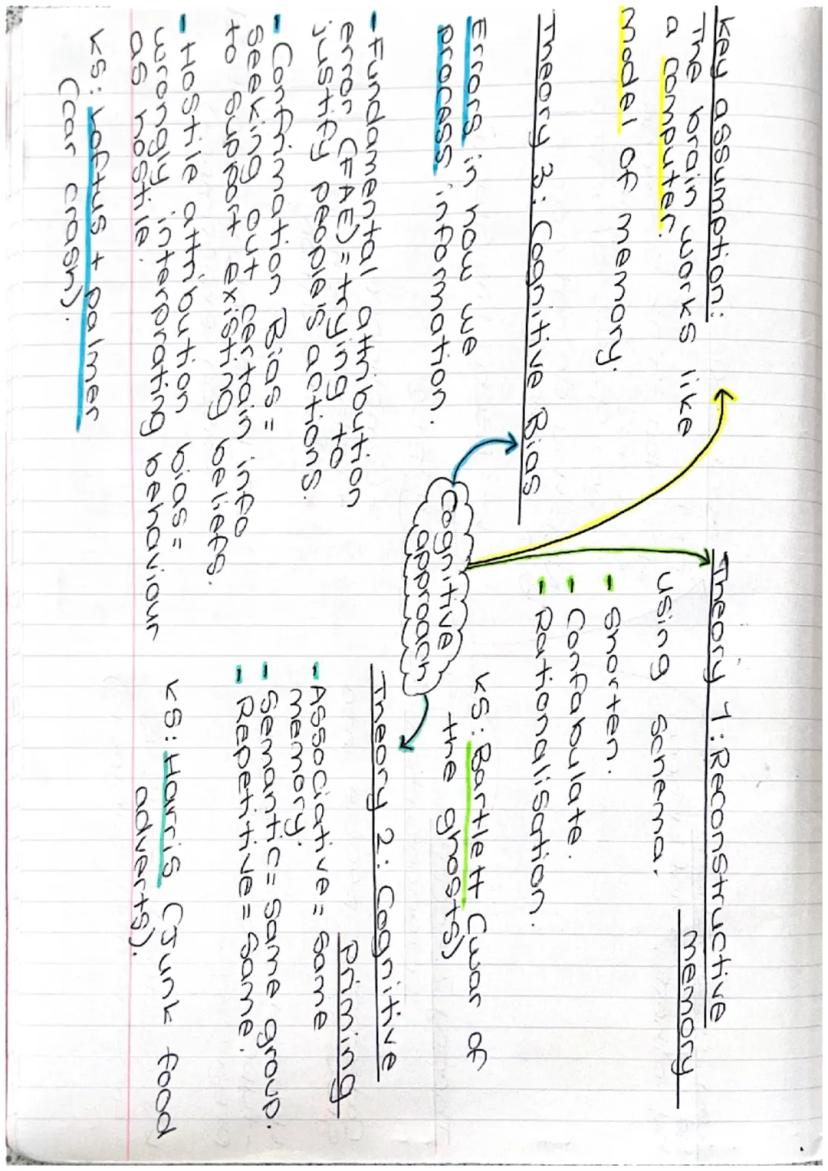 Key assumption:
The brain works like
a computer.
model of memory.
Theory 1: Reconstructive
memory
using schema.
- Shorten.
- Confabulate.
- Rationalisation.
KS: Bartlett (war of
the ghosts)
Theory 3: Cognitive Bias
Errors in how we
process information.
- Fundamental attribution
error (FAE) = trying to
justify people's actions.
- Confirmation Bias =
seeking out certain info
to support existing beliefs.
- Hostile attribution bias =
wrongly interprating behaviour
as hostile.
KS: Loftus + palmer
(car crash).
Cognitive
approach
Theory 2: Cognitive
priming
- Associative = Same
memory.
- Semantic = Same group.
- Repetitive = Same.
KS: Harris (Junk food
adverts).